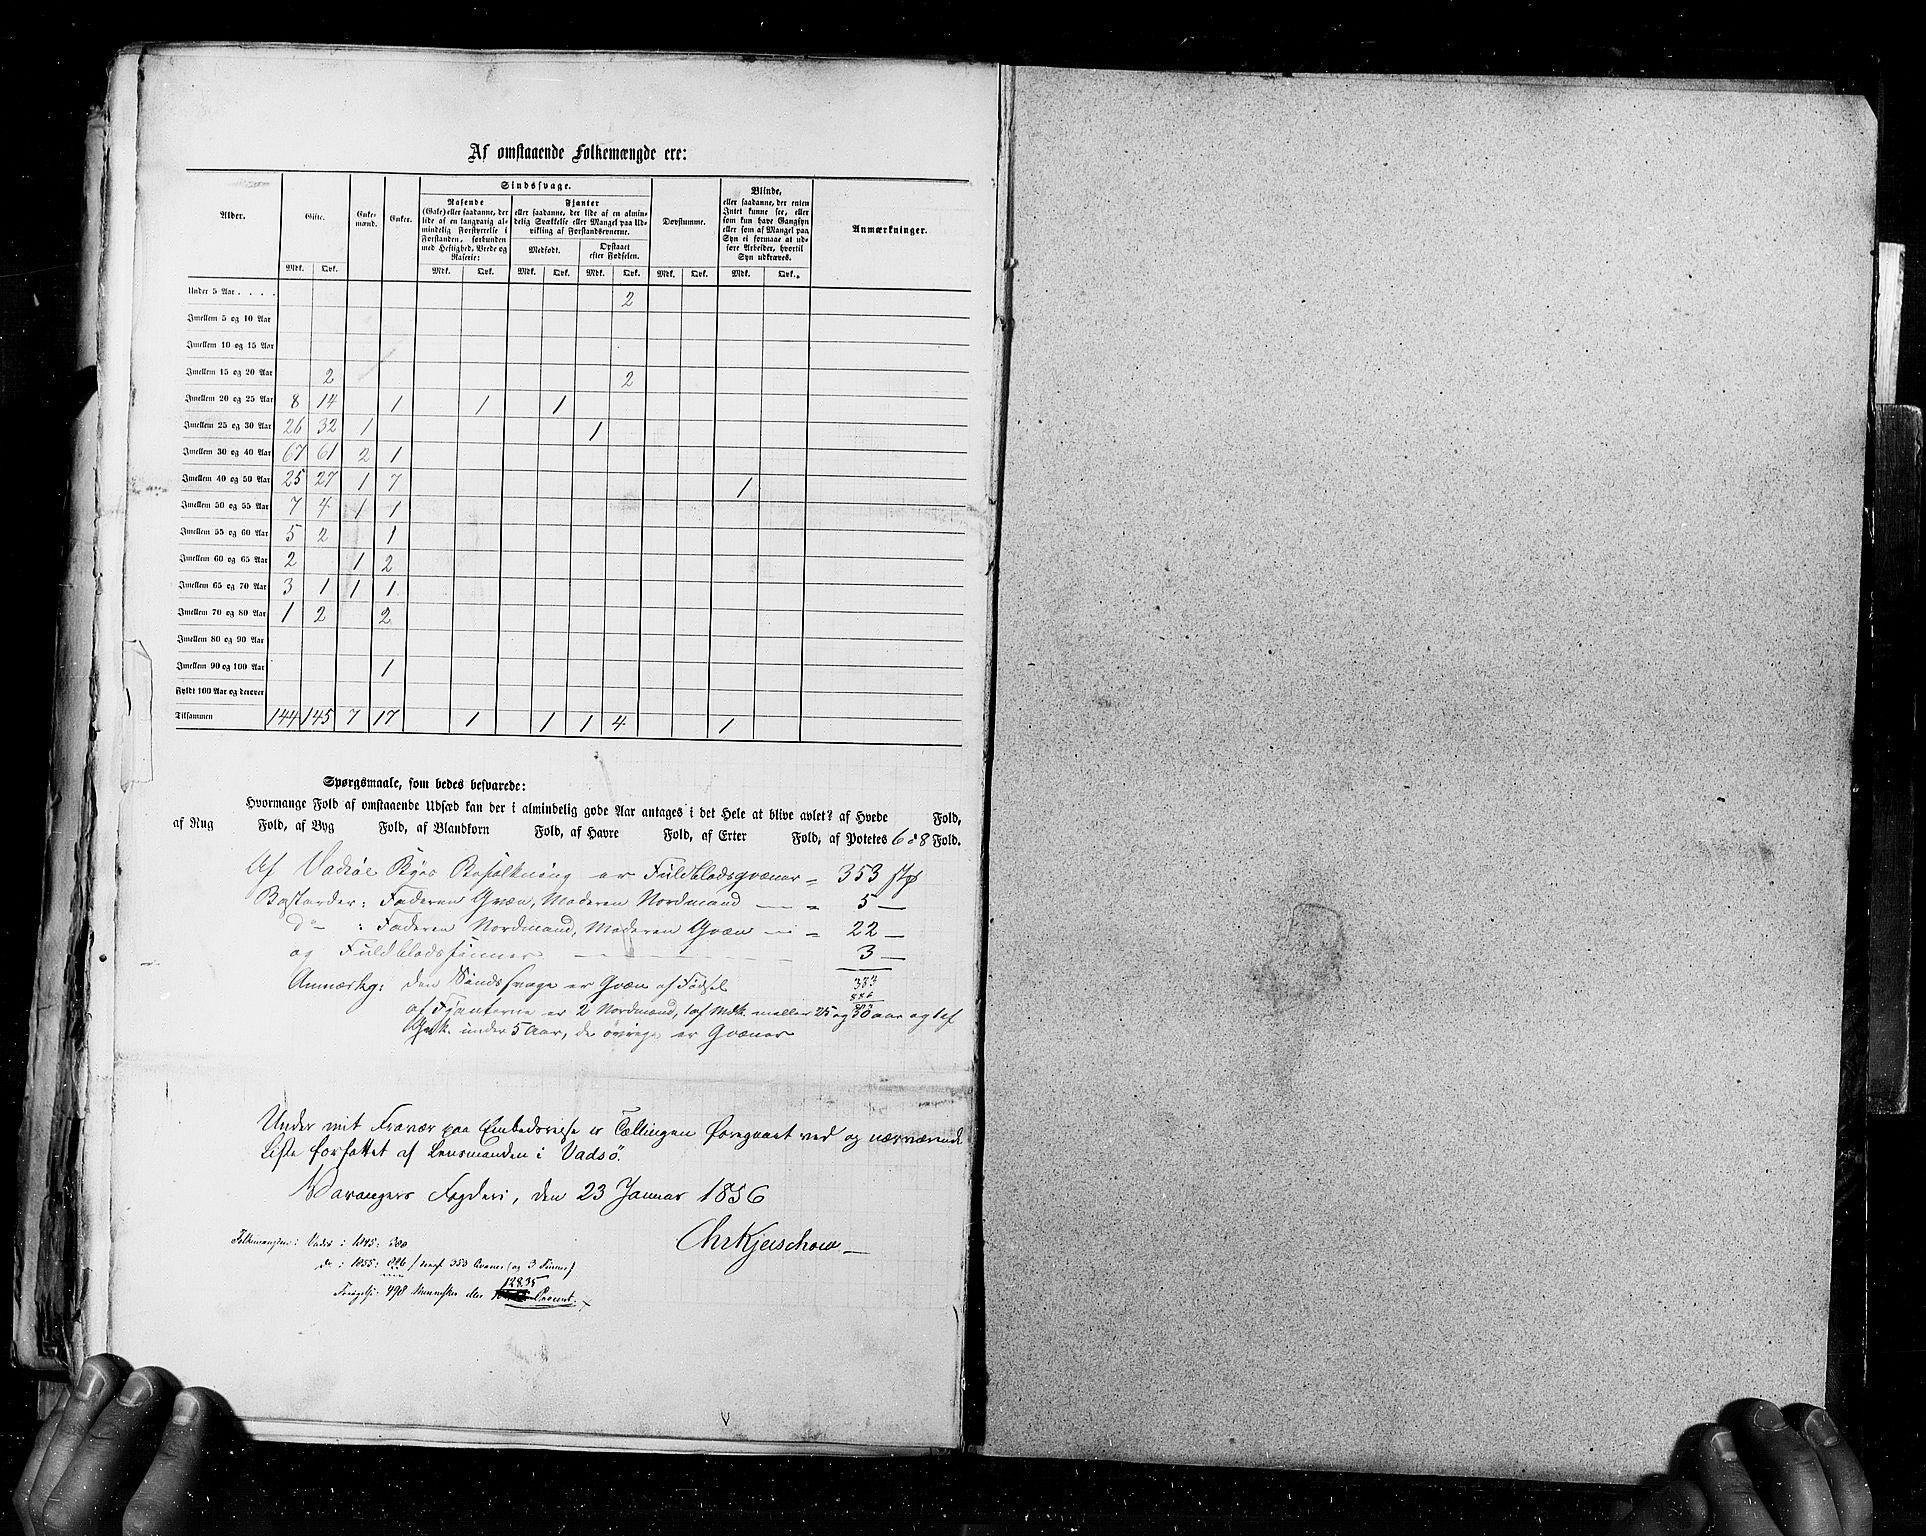 Af omstaaende Folkemængde ere:
Alder. Gifte. Enke-mænd. Enker. Sindssvage. Døvstumme. Blinde, Anmærkninger.
Rasende (Gale) eller saadanne, der lide af en langvarig almindelig Forstyrrelse i Forstanden, forbunden med Heftighed, Vrede og Raserie:
Fjanter eller saadanne, der lide af en almindelig Svækkelse eller Mangel paa Udvikling af Forstandsevnerne.
Medfødt. Opstaaet efter Fødselen.
eller saadanne, der enten Intet kunne see, eller som kun have Gangsyn eller som af Mangel paa Syn ei formaae at udføre Arbeider, hvortil Syn udkræves.
Mdk. Qvk. Mdk. Qvk. Mdk. Qvk. Mdk. Qvk. Mdk. Qvk. Mdk. Qvk.
Under 5 Aar . . . . 2
Imellem 5 og 10 Aar
Imellem 10 og 15 Aar
Imellem 15 og 20 Aar 2 2
Imellem 20 og 25 Aar 8 14 1 1 1
Imellem 25 og 30 Aar 26 32 1 1
Imellem 30 og 40 Aar 67 61 2 1
Imellem 40 og 50 Aar 25 27 1 7 1
Imellem 50 og 55 Aar 7 4 1 1
Imellem 55 og 60 Aar 5 2 1
Imellem 60 og 65 Aar 2 1 2
Imellem 65 og 70 Aar 3 1 1 1
Imellem 70 og 80 Aar 1 2 2
Imellem 80 og 90 Aar
Imellem 90 og 100 Aar 1
Fyldt 100 Aar og derover
Tilsammen 144 145 7 17 1 1 1 4 1
Spørgsmaale, som bedes besvarede:
Hvormange Fold af omstaaende Udsæd kan der i almindelig gode Aar antages i det Hele at blive avlet? af Hvede Fold,
af Rug Fold, af Byg Fold, af Blandkorn Fold, af Havre Fold, af Erter Fold, af Potetes 6 à 8 Fold.
Af Vadsøe Byes Befolkning er Fuldblodsqvæner = 353 stk
Bastarder: Faderen Qvæn, Moderen Nordmand — = 5 —
do : Faderen Nordmand, Moderen Qvæn — = 22 —
og Fuldblodsfinner — 3 —
Anmærkg: den Sindssvage er Qvæn af Fødsel 383
af Fjanterne er 2 Nordmænd, 1 af Mdk. mellem 25 og 30 aar og 1 af
Qvk. under 5 Aar, de øvrige er Qvæner
Under mit Fravær paa Embedsreise er Tællingen foregaaet ved og nærværende
Liste forfattet af Lensmanden i Vadsö.
Varangers Fogderi, den 23 Januar 1856
Chr Kjerschow
Folkemængden: Vadsø: 1845: 388
do : 1855: 886 / hvoraf 353 Qvæner (og 3 Finner)
Forøgelse: 498 Mennesker eller 128.35 Procent.